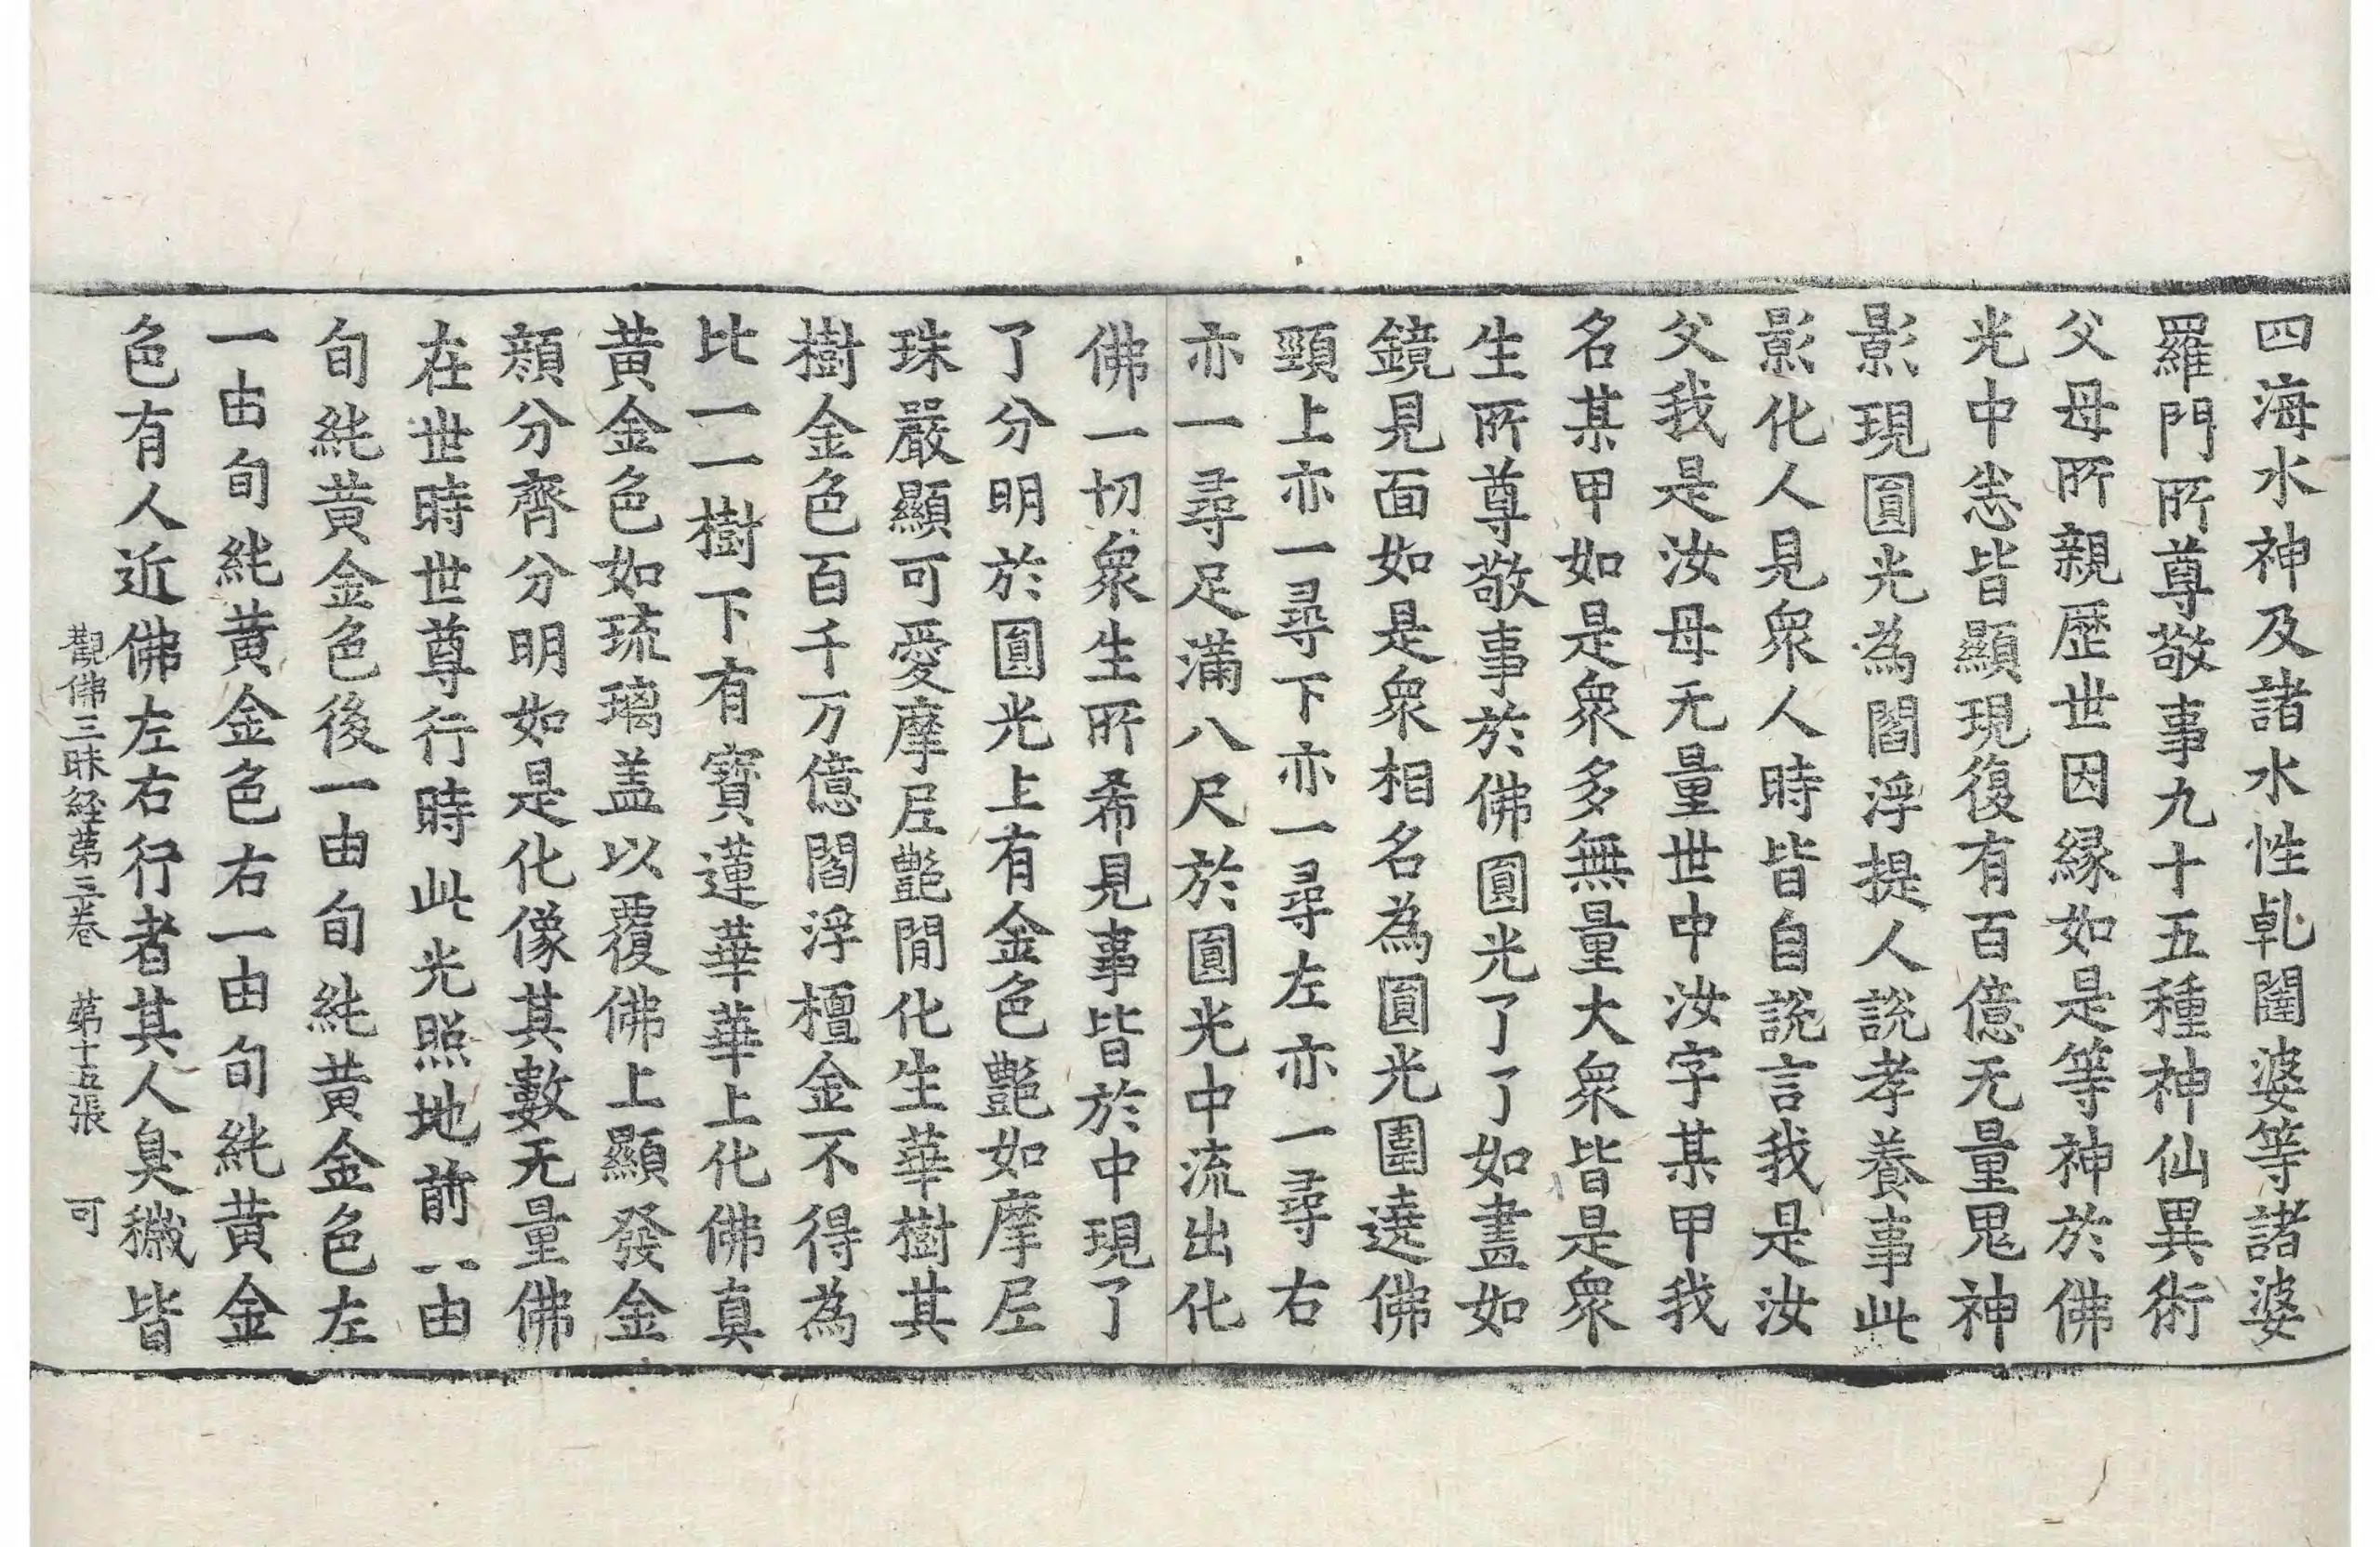 四海水神及諸水性乹闥婆等諸婆
羅門所尊敬事九十五種神仙異術
父母所親歷世因緣如是等神於佛
光中恙皆顯現復有百億无量鬼神
影現圓光為閻浮提人說孝養事此
影化人見衆人時皆自說言我是汝
父我是汝母无量世中汝字某甲我
名某甲如是衆多無量大衆皆是衆
生所尊敬事於佛圓光了了如畫如
鏡見面如是衆相名為圓光圍遶佛
頸上亦一尋下亦一尋左亦一尋右
亦一尋足滿八尺於圓光中流出化
佛一切衆生所希見事皆於中現了
了分明於圓光上有金色豔如摩尼
珠嚴顯可愛摩尼豔間化生華樹其
樹金色百千万億閻浮檀金不得為
比一一樹下有寶蓮華華上化佛真
黃金色如琉璃盖以覆佛上顯發金
顏分齊分明如是化像其數无量佛
在世時世尊行時此光照地前一由
旬純黃金色後一由旬純黃金色左
一由旬純黃金色右一由旬純黃金
色有人近佛左右行者其人臭穢皆
觀佛三昧経第三卷 第十五張 可